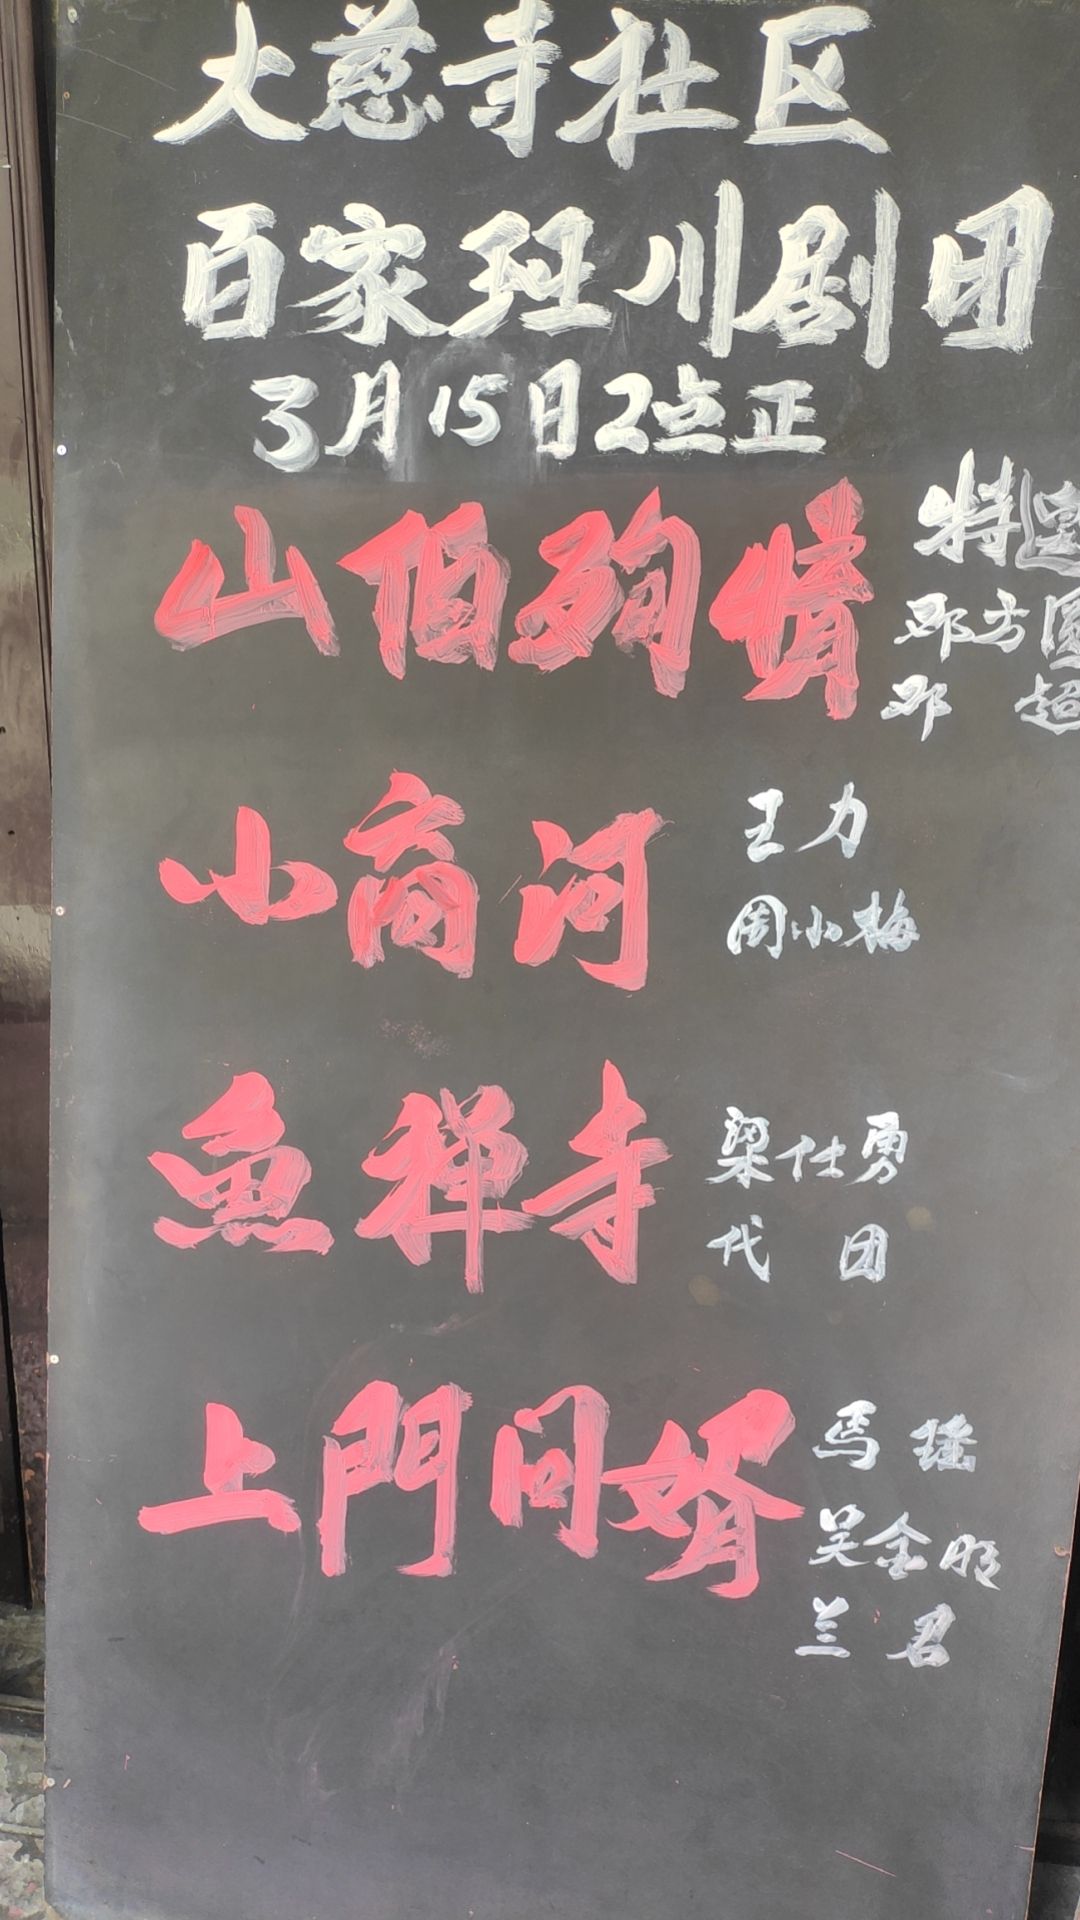 大慈寺社区
百家班川剧团
3月15日2点正
山伯殉情
特邀
邓方圆
邓 超
小商河
王力
周小梅
鱼禅寺
梁仕勇
代 团
上門问婿
馬 瑶
吴金明
兰 君